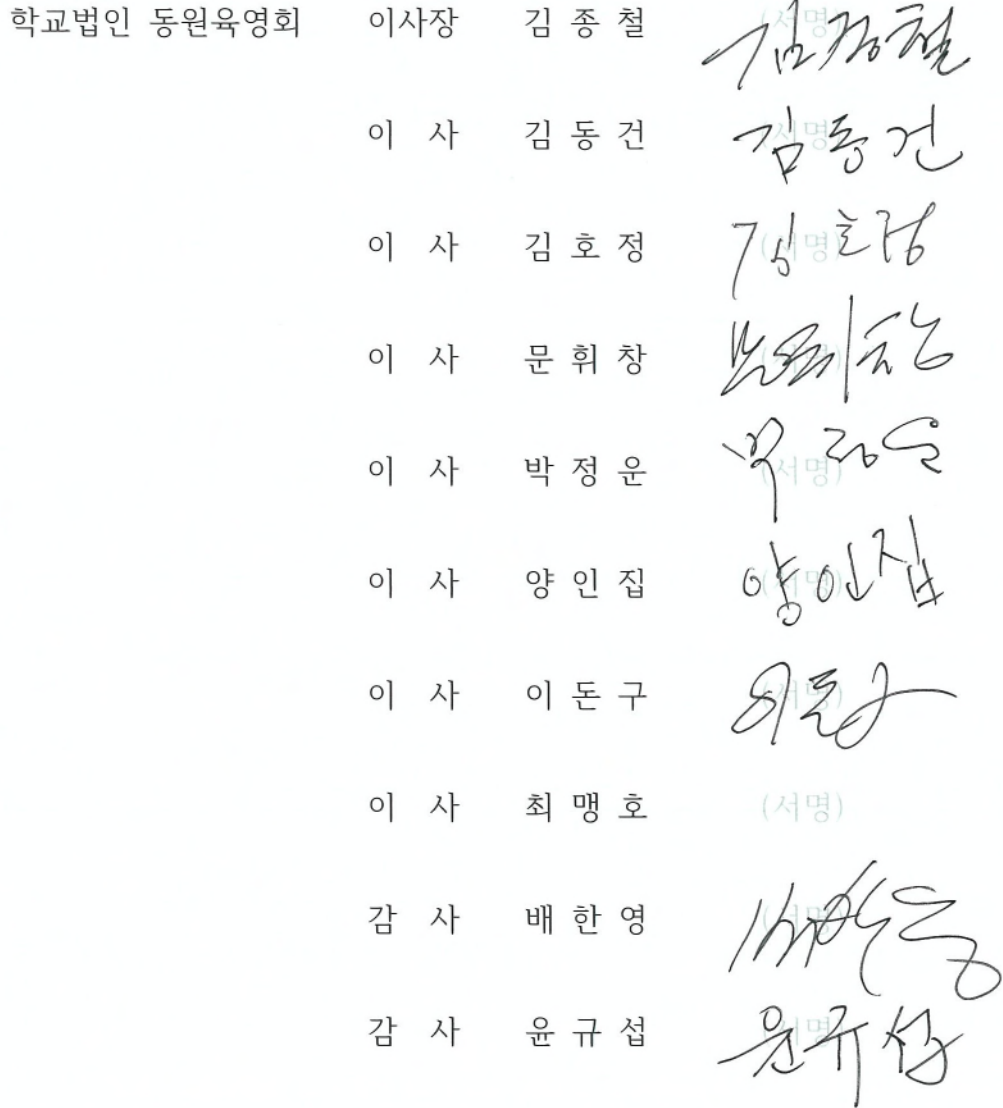 학교법인 동원육영회 이사장 김종철 (서명) 김종철
이 사 김동건 (서명) 김동건
이 사 김호정 (서명) 김호정
이 사 문휘창 (서명) 문휘창
이 사 박정운 (서명) 박정운
이 사 양인집 (서명) 양인집
이 사 이돈구 (서명) 이돈구
이 사 최맹호 (서명)
감 사 배한영 (서명) 배한영
감 사 윤규섭 (서명) 윤규섭